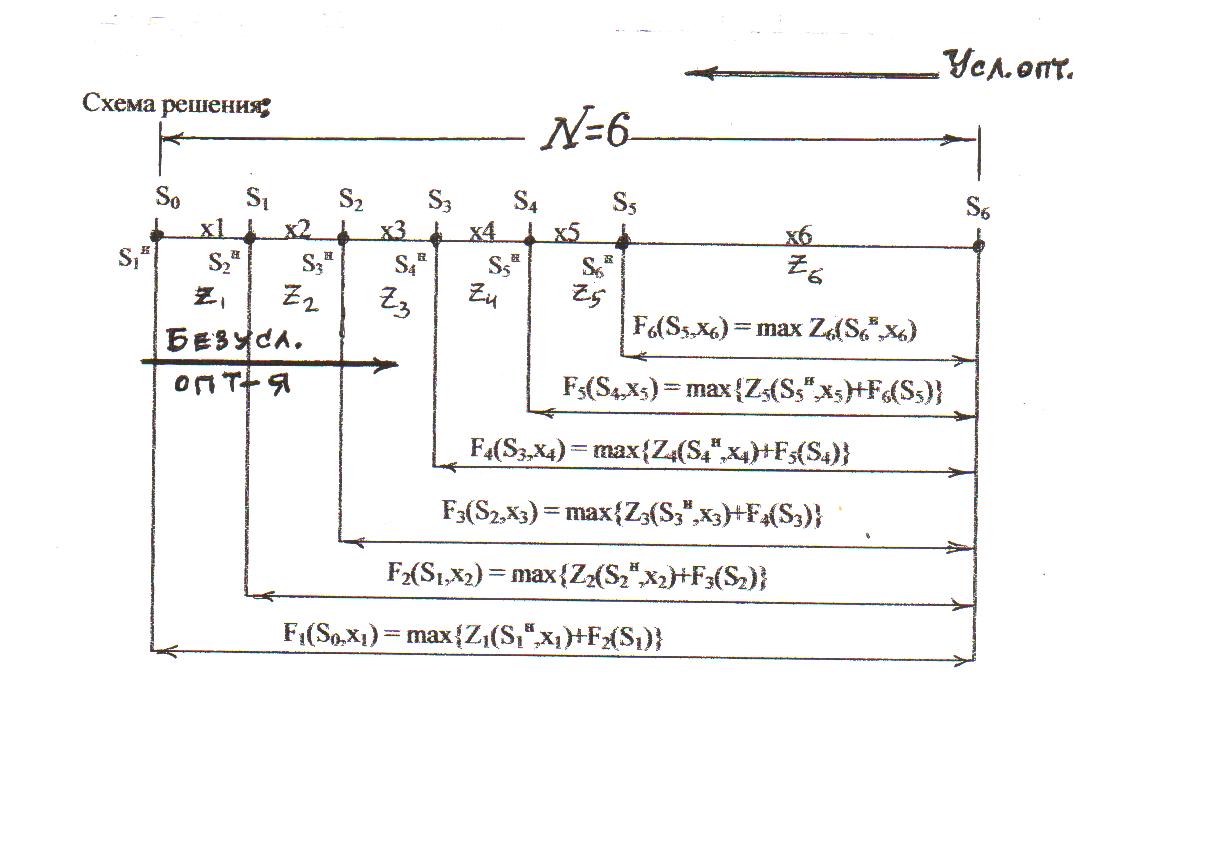 Усл.опт.
Схема решения:
N=6
S₀ S₁ S₂ S₃ S₄ S₅ S₆
x1 x2 x3 x4 x5 x6
S₁ᴴ S₂ᴴ S₃ᴴ S₄ᴴ S₅ᴴ S₆ᴴ
Z₁ Z₂ Z₃ Z₄ Z₅ Z₆
F₆(S₅,x₆) = max Z₆(S₆ᴴ,x₆)
Безусл.
опт-я
F₅(S₄,x₅) = max{Z₅(S₅ᴴ,x₅)+F₆(S₅)}
F₄(S₃,x₄) = max{Z₄(S₄ᴴ,x₄)+F₅(S₄)}
F₃(S₂,x₃) = max{Z₃(S₃ᴴ,x₃)+F₄(S₃)}
F₂(S₁,x₂) = max{Z₂(S₂ᴴ,x₂)+F₃(S₂)}
F₁(S₀,x₁) = max{Z₁(S₁ᴴ,x₁)+F₂(S₁)}